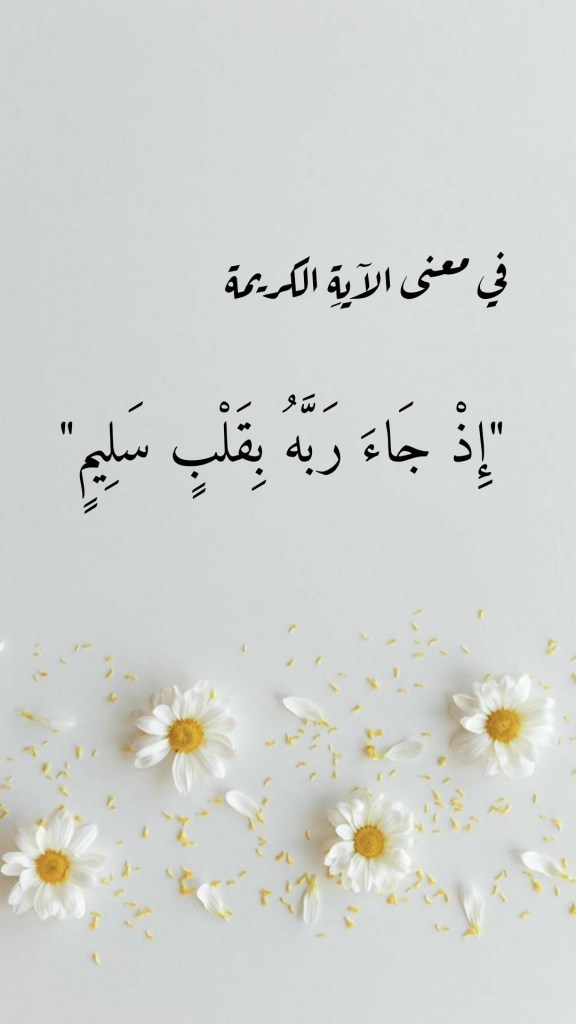 في معنى الآيةِ الكريمة
"إِذْ جَاءَ رَبَّهُ بِقَلْبٍ سَلِيمٍ"